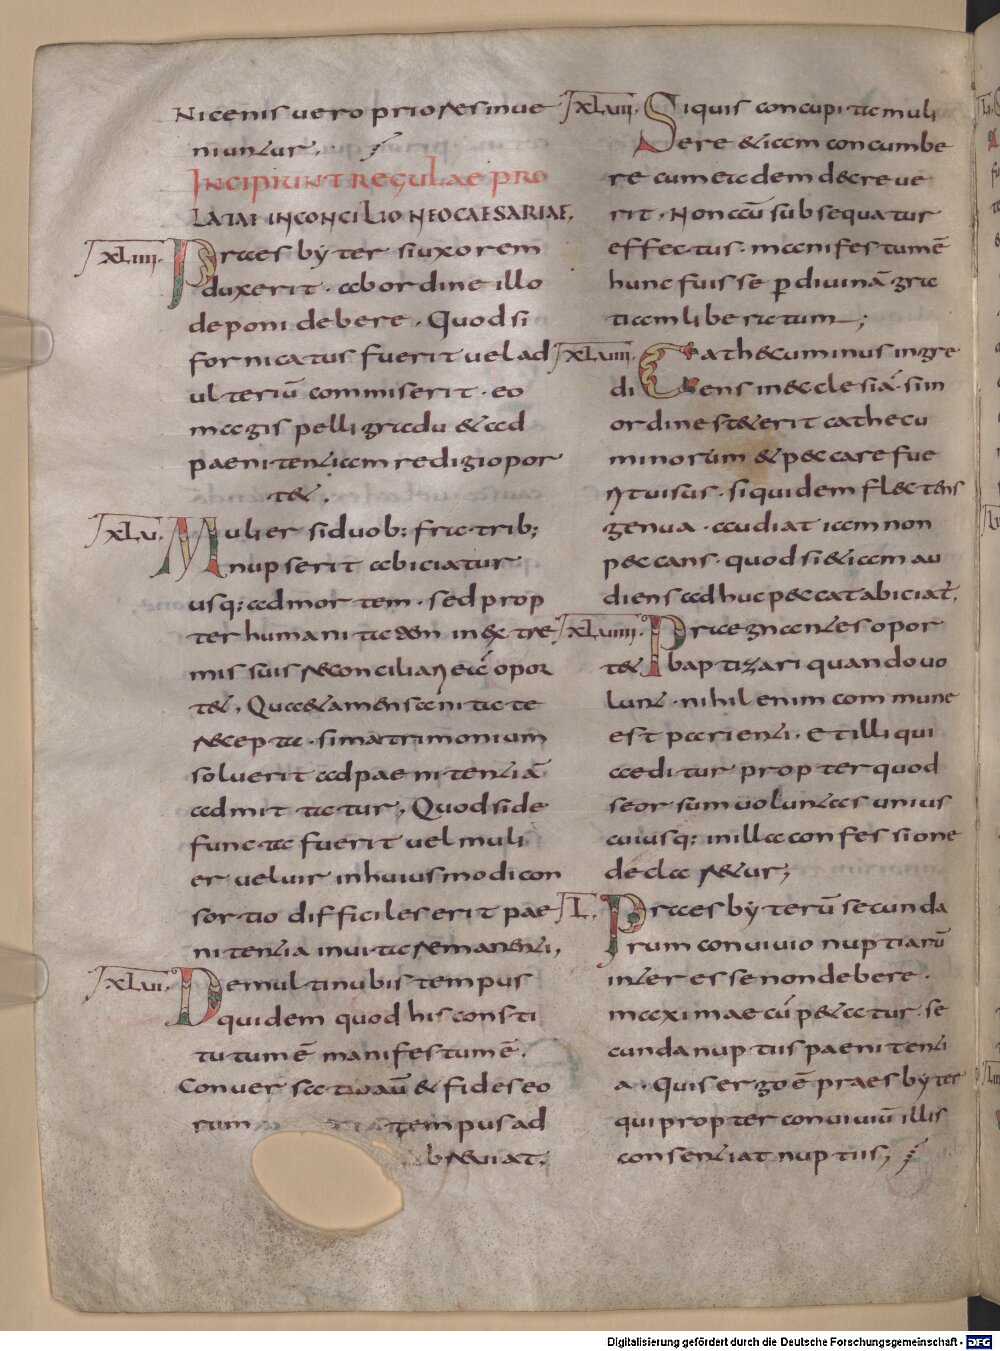 Nicenis uero priores inue
niuntur.
INCIPIUNT REGULAE PRO
LATAE IN CONCILIO NEOCAESARIAE.
XLIIII. Praesbyter si uxorem
duxerit. ab ordine illo
deponi debere. Quod si
fornicatus fuerit uel ad
ulteriū commiserit. eo
magis pelli gradu & ad
paenitentiam redigi opor
t&.
XLV. Mulier si duob; fratrib;
nupserit abiciatur
usq; ad mortem. sed prop
ter humanitatem in extre
mis suis reconciliari eā opor
t&. Qua&amen sanitate
recepta. si matrimonium
soluerit ad paenitentiā
admittatur. Quod si de
functa fuerit uel muli
er uel uir in huiusmodi con
sortio difficilis erit pae
nitentia inuita remanenti.
XLVI. De multinubis tempus
quidem quod his consti
tutum ē manifestum ē.
Conuersatio aū & fides eo
rum tempus ad
breuiat.
XLVII. Si quis concupita muli
ere & iam concumbe
re cum eadem decreue
rit. Non aū subsequatur
effectus. manifestum ē
hunc fuisse p diuinā gra
tiam liberatum;
XLVIII. Cathecuminus ingre
diens in ecclesiā. si in
ordine st&erit cathecu
minorum & peccare fue
rit uisus. siquidem flectens
genua. audiat iam non
peccans. quod si &iam au
diens adhuc peccat abiciat̄.
XLVIIII. Praegnantes opor
t& baptizari quando uo
lunt. nihil enim commune
est parienti. Et illi qui
aeditur propter quod
seorsum uoluntas unius
cuiusq; in illa confessione
declaretur;
L. Praesbyterū secunda
rum conuiuio nuptiarū
interesse non debere.
maximae cū p&atur se
cunda nuptiis paeniteni
a. Quis ergo ē praesbyter
qui propter conuiuiū illis
consentiat nuptiis;
Digitalisierung gefördert durch die Deutsche Forschungsgemeinschaft - DFG